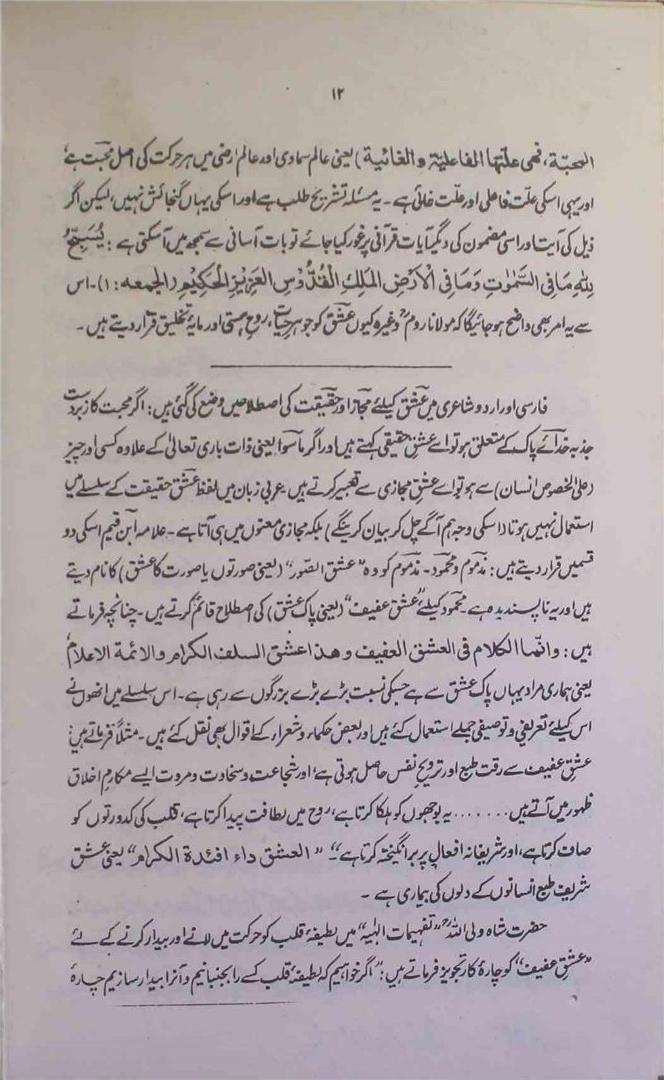 ۱۲
المحبّة، فھی علّتھا الفاعلیة والغائیة) یعنی عالم سماوی اور عالم ارضی میں ہر حرکت کی اصل محبت ہے
اور یہی اسکی علّت فاعلی اور علّت غائی ہے۔ یہ مسئلہ تشریح طلب ہے اور اسکی یہاں گنجائش نہیں، لیکن اگر
ذیل کی آیت اور اسی مضمون کی دیگر آیات قرآنی پر غور کیا جائے تو بات آسانی سے سمجھ میں آسکتی ہے : یُسَبِّحُ
لِلّٰہِ مَا فِی السَّمٰوٰتِ وَمَا فِی الْاَرْضِ الْمَلِکِ الْقُدُّوْسِ الْعَزِیْزِ الْحَکِیْمِ (الجمعہ : ۱)۔ اس
سے یہ امر بھی واضح ہو جائیگا کہ مولانا رومؒ وغیرہ کیوں عشق کو جوہرِ حیات، روحِ ہستی اور مایۂ تخلیق قرار دیتے ہیں۔
فارسی اور اردو شاعری میں عشق کیلئے مجاز اور حقیقت کی اصطلاحیں وضع کی گئی ہیں : اگر محبت کا زبردست
جذبہ خدائے پاک کے متعلق ہو تو اسے عشق حقیقی کہتے ہیں اور اگر ماسوا یعنی ذات باری تعالیٰ کے علاوہ کسی اور چیز
(علی الخصوص انسان) سے ہو تو اسے عشق مجازی سے تعبیر کرتے ہیں۔ عربی زبان میں لفظ عشق حقیقت کے سلسلے میں
استعمال نہیں ہوتا (اسکی وجہ ہم آگے چل کر بیان کرینگے) بلکہ مجازی معنوں میں ہی آتا ہے۔ علامہ ابن قیم اسکی دو
قسمیں قرار دیتے ہیں : مذموم و محمود۔ مذموم کو وہ "عشق الصّور" (یعنی صورتوں یا صورت کا عشق) کا نام دیتے
ہیں اور یہ ناپسندیدہ ہے۔ محمود کیلئے "عشق عفیف" (یعنی پاک عشق) کی اصطلاح قائم کرتے ہیں۔ چنانچہ فرماتے
ہیں : وانّما الکلام فی العشق العفیف وھذا عشق السلف الکرام والائمة الاعلام
یعنی ہماری مراد یہاں پاک عشق سے ہے جسکی نسبت بڑے بڑے بزرگوں سے رہی ہے۔ اس سلسلے میں انھوں نے
اس کیلئے تعریفی و توصیفی جملے استعمال کئے ہیں اور بعض حکماء و شعراء کے اقوال بھی نقل کئے ہیں۔ مثلاً فرماتے ہیں :
عشق عفیف سے رقت طبع اور ترویح نفس حاصل ہوتی ہے، اور شجاعت و سخاوت و مروت ایسے مکارم اخلاق
ظہور میں آتے ہیں ....... یہ بوجھوں کو ہلکا کرتا ہے، روح میں لطافت پیدا کرتا ہے، قلب کی کدورتوں کو
صاف کرتا ہے، اور شریفانہ افعال پر برانگیختہ کرتا ہے"۔ "العشق داء افئدة الکرام" یعنی عشق
شریف طبع انسانوں کے دلوں کی بیماری ہے۔
حضرت شاہ ولی اللہؒ "تفہیمات الٰہیہ" میں لطیفۂ قلب کو حرکت میں لانے اور بیدار کرنے کے لئے
"عشق عفیف" کو چارۂ کار تجویز فرماتے ہیں : "اگر خواہیم کہ لطیفۂ قلب کے را بجنبانیم و آنرا بیدار سازیم چارۂ